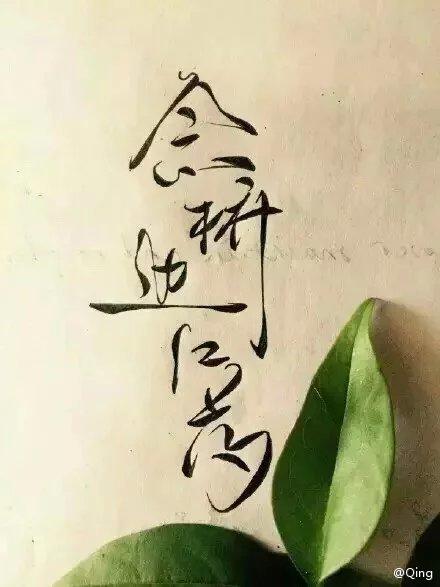 念桥边红药
@Qing